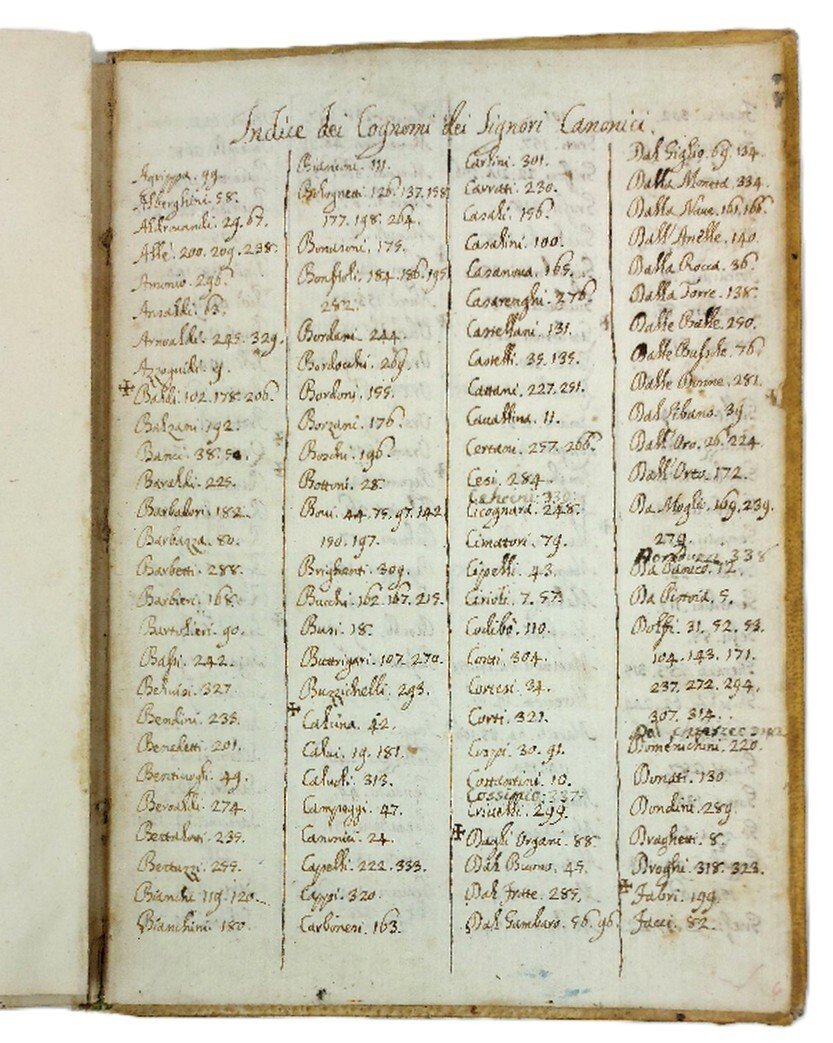 Indice dei Cognomi dei Signori Canonici.
Agrippa. 99.
Alberghini. 58.
Aldrovandi. 29. 67.
Allè. 200. 209. 238.
Amonio. 296.
Ansaldi. 63.
Arnoaldi. 245. 329.
Azzoguidi. 9.
Baldi. 102. 178. 206.
Balzani. 192.
Banci. 38.
Baraldi. 225.
Barbadori. 182.
Barbazza. 80.
Barbetti. 288.
Barbieri. 168.
Bartolieri. 90.
Bassi. 242.
Beluisi. 327
Bendini. 235.
Benedetti. 201.
Bentivogli. 49.
Beroaldi. 274.
Bertalotti. 239.
Bertuzzi. 255.
Bianchi. 119. 120.
Bianchini. 180.
Bianconi. 111.
Bolognetti. 126. 137. 158
177. 198. 264.
Bonasoni. 175.
Bonfioli. 184. 186. 195
282.
Bordani. 244.
Bordocchi. 269.
Bordoni. 155.
Borzani. 176.
Boschi. 196.
Bottoni. 28.
Boui. 44. 75. 97. 142
190. 197.
Briganti. 309.
Bucchi. 162. 167. 215.
Busi. 18.
Buttrigari. 107. 270.
Buzzichelli. 293.
Calcina. 42.
Calui. 19. 181.
Caluoli. 313.
Campeggi. 47.
Canonici. 24.
Capelli. 222. 333.
Cappi. 320.
Carbonesi. 163.
Carlini. 301.
Carrati. 230.
Casali. 156.
Casalini. 100.
Casanova. 165.
Casarenghi. 276.
Castellani. 131.
Castelli. 35. 135.
Cattani. 227. 251.
Cauallina. 11.
Certani. 257. 266.
Cesi. 284.
Cicognara. 248.
Cimatori. 79.
Cipelli. 43.
Cirioli. 7. 57.
Codibò. 110.
Conti. 304.
Cortesi. 34.
Corti. 321.
Cospi. 30. 91.
Costantini. 10.
Cossimio. 337.
Criuelli. 299.
Dagli Organi. 88
Dal Buono. 45.
Dal Frate. 285.
Dal Gambaro. 56. 96.
Dal Giglio. 69. 134.
Dalla Moneta. 334.
Dalla Naue. 161. 166.
Dall' Anelle. 140.
Dalla Rocca. 36.
Dalla Torre. 138.
Dalle Balle. 250.
Dalle Bussole. 76.
Dalle Donne. 281.
Dal Libano. 39.
Dall' Oro. 26. 224.
Dall' Orto. 172.
Da Moglio. 169. 239.
279.
338
Da Panico. 12.
Da Pistoia. 5.
Dolfi. 31. 52. 53.
104. 143. 171.
237. 272. 294.
307. 314.
Domenichini. 220.
Donati. 130
Dondini. 289.
Draghetti. 8.
Droghi. 318. 323.
Fabri. 199.
Facci. 82.